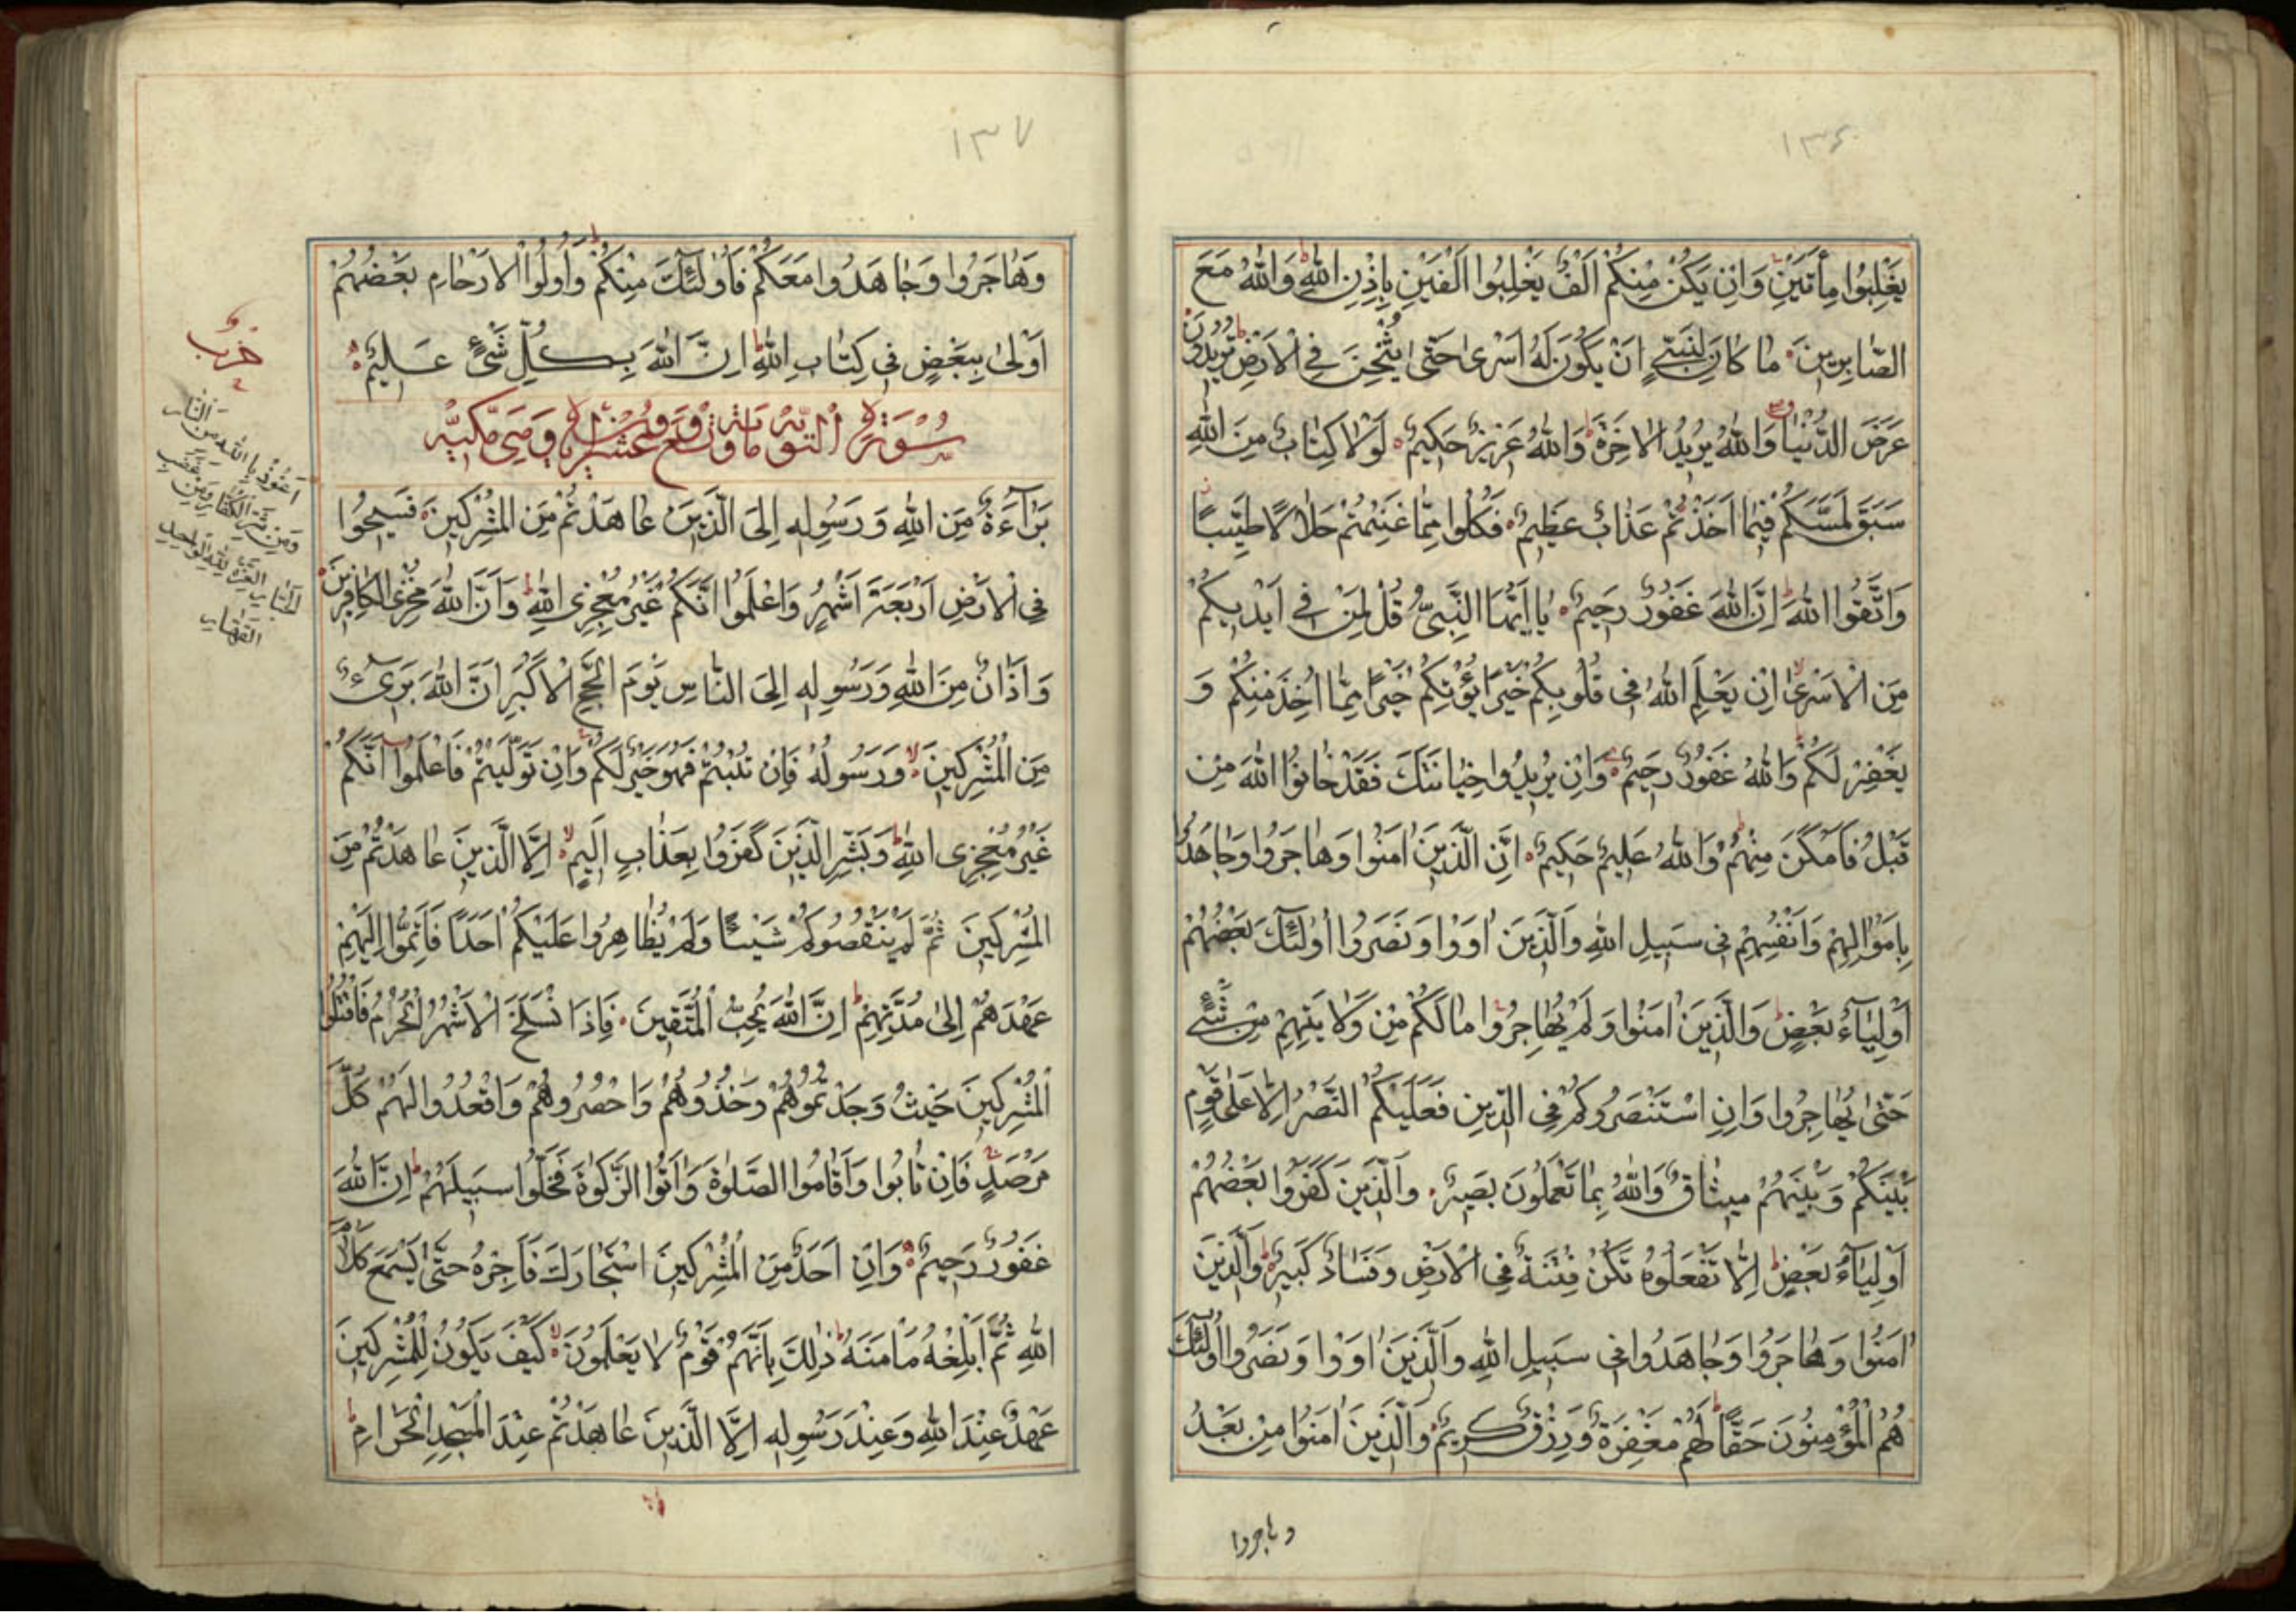 ١٣٦
يَغْلِبُوا مِأَتَيْنِ وَاِنْ يَكُنْ مِنْكُمْ اَلْفٌ يَغْلِبُوا اَلْفَيْنِ بِاِذْنِ اللّٰهِ وَاللّٰهُ مَعَ
الصَّابِرِينَ مَا كَانَ لِنَبِيٍّ اَنْ يَكُونَ لَهُ اَسْرٰى حَتّٰى يُثْخِنَ فِي الْاَرْضِ تُرِيدُونَ
عَرَضَ الدُّنْيَا وَاللّٰهُ يُرِيدُ الْاٰخِرَةَ وَاللّٰهُ عَزِيزٌ حَكِيمٌ لَوْلَا كِتَابٌ مِنَ اللّٰهِ
سَبَقَ لَمَسَّكُمْ فِيمَا اَخَذْتُمْ عَذَابٌ عَظِيمٌ فَكُلُوا مِمَّا غَنِمْتُمْ حَلَالًا طَيِّبًا
وَاتَّقُوا اللّٰهَ اِنَّ اللّٰهَ غَفُورٌ رَحِيمٌ يَا اَيُّهَا النَّبِيُّ قُلْ لِمَنْ فِي اَيْدِيكُمْ
مِنَ الْاَسْرٰى اِنْ يَعْلَمِ اللّٰهُ فِي قُلُوبِكُمْ خَيْرًا يُؤْتِكُمْ خَيْرًا مِمَّا اُخِذَ مِنْكُمْ وَ
يَغْفِرْ لَكُمْ وَاللّٰهُ غَفُورٌ رَحِيمٌ وَاِنْ يُرِيدُوا خِيَانَتَكَ فَقَدْ خَانُوا اللّٰهَ مِنْ
قَبْلُ فَاَمْكَنَ مِنْهُمْ وَاللّٰهُ عَلِيمٌ حَكِيمٌ اِنَّ الَّذِينَ اٰمَنُوا وَهَاجَرُوا وَجَاهَدُوا
بِاَمْوَالِهِمْ وَاَنْفُسِهِمْ فِي سَبِيلِ اللّٰهِ وَالَّذِينَ اٰوَوْا وَنَصَرُوا اُولٰئِكَ بَعْضُهُمْ
اَوْلِيَاءُ بَعْضٍ وَالَّذِينَ اٰمَنُوا وَلَمْ يُهَاجِرُوا مَا لَكُمْ مِنْ وَلَايَتِهِمْ مِنْ شَيْءٍ
حَتّٰى يُهَاجِرُوا وَاِنِ اسْتَنْصَرُوكُمْ فِي الدِّينِ فَعَلَيْكُمُ النَّصْرُ اِلَّا عَلٰى قَوْمٍ
بَيْنَكُمْ وَبَيْنَهُمْ مِيثَاقٌ وَاللّٰهُ بِمَا تَعْمَلُونَ بَصِيرٌ وَالَّذِينَ كَفَرُوا بَعْضُهُمْ
اَوْلِيَاءُ بَعْضٍ اِلَّا تَفْعَلُوهُ تَكُنْ فِتْنَةٌ فِي الْاَرْضِ وَفَسَادٌ كَبِيرٌ وَالَّذِينَ
اٰمَنُوا وَهَاجَرُوا وَجَاهَدُوا فِي سَبِيلِ اللّٰهِ وَالَّذِينَ اٰوَوْا وَنَصَرُوا اُولٰئِكَ
هُمُ الْمُؤْمِنُونَ حَقًّا لَهُمْ مَغْفِرَةٌ وَرِزْقٌ كَرِيمٌ وَالَّذِينَ اٰمَنُوا مِنْ بَعْدُ
وهاجروا
١٣٧
وَهَاجَرُوا وَجَاهَدُوا مَعَكُمْ فَاُولٰئِكَ مِنْكُمْ وَاُولُوا الْاَرْحَامِ بَعْضُهُمْ
اَوْلٰى بِبَعْضٍ فِي كِتَابِ اللّٰهِ اِنَّ اللّٰهَ بِكُلِّ شَيْءٍ عَلِيمٌ
سُورَةُ التَّوْبَة مائة وتسع وعشرون اية وهي مكية
بَرَاءَةٌ مِنَ اللّٰهِ وَرَسُولِهِ اِلَى الَّذِينَ عَاهَدْتُمْ مِنَ الْمُشْرِكِينَ فَسِيحُوا
فِي الْاَرْضِ اَرْبَعَةَ اَشْهُرٍ وَاعْلَمُوا اَنَّكُمْ غَيْرُ مُعْجِزِي اللّٰهِ وَاَنَّ اللّٰهَ مُخْزِي الْكَافِرِينَ
وَاَذَانٌ مِنَ اللّٰهِ وَرَسُولِهِ اِلَى النَّاسِ يَوْمَ الْحَجِّ الْاَكْبَرِ اَنَّ اللّٰهَ بَرِيءٌ
مِنَ الْمُشْرِكِينَ وَرَسُولُهُ فَاِنْ تُبْتُمْ فَهُوَ خَيْرٌ لَكُمْ وَاِنْ تَوَلَّيْتُمْ فَاعْلَمُوا اَنَّكُمْ
غَيْرُ مُعْجِزِي اللّٰهِ وَبَشِّرِ الَّذِينَ كَفَرُوا بِعَذَابٍ اَلِيمٍ اِلَّا الَّذِينَ عَاهَدْتُمْ مِنَ
الْمُشْرِكِينَ ثُمَّ لَمْ يَنْقُصُوكُمْ شَيْئًا وَلَمْ يُظَاهِرُوا عَلَيْكُمْ اَحَدًا فَاَتِمُّوا اِلَيْهِمْ
عَهْدَهُمْ اِلٰى مُدَّتِهِمْ اِنَّ اللّٰهَ يُحِبُّ الْمُتَّقِينَ فَاِذَا انْسَلَخَ الْاَشْهُرُ الْحُرُمُ فَاقْتُلُوا
الْمُشْرِكِينَ حَيْثُ وَجَدْتُمُوهُمْ وَخُذُوهُمْ وَاحْصُرُوهُمْ وَاقْعُدُوا لَهُمْ كُلَّ
مَرْصَدٍ فَاِنْ تَابُوا وَاَقَامُوا الصَّلٰوةَ وَاٰتَوُا الزَّكٰوةَ فَخَلُّوا سَبِيلَهُمْ اِنَّ اللّٰهَ
غَفُورٌ رَحِيمٌ وَاِنْ اَحَدٌ مِنَ الْمُشْرِكِينَ اسْتَجَارَكَ فَاَجِرْهُ حَتّٰى يَسْمَعَ كَلَامَ
اللّٰهِ ثُمَّ اَبْلِغْهُ مَاْمَنَهُ ذٰلِكَ بِاَنَّهُمْ قَوْمٌ لَا يَعْلَمُونَ كَيْفَ يَكُونُ لِلْمُشْرِكِينَ
عَهْدٌ عِنْدَ اللّٰهِ وَعِنْدَ رَسُولِهِ اِلَّا الَّذِينَ عَاهَدْتُمْ عِنْدَ الْمَسْجِدِ الْحَرَامِ
حزب
اَعُوذُ بِاللّٰهِ مِنَ النَّارِ
وَمِنْ شَرِّ الْكُفَّارِ وَمِنْ غَضَبِ
الْجَبَّارِ الْعِزَّةُ لِلّٰهِ الْوَاحِدِ
الْقَهَّارِ